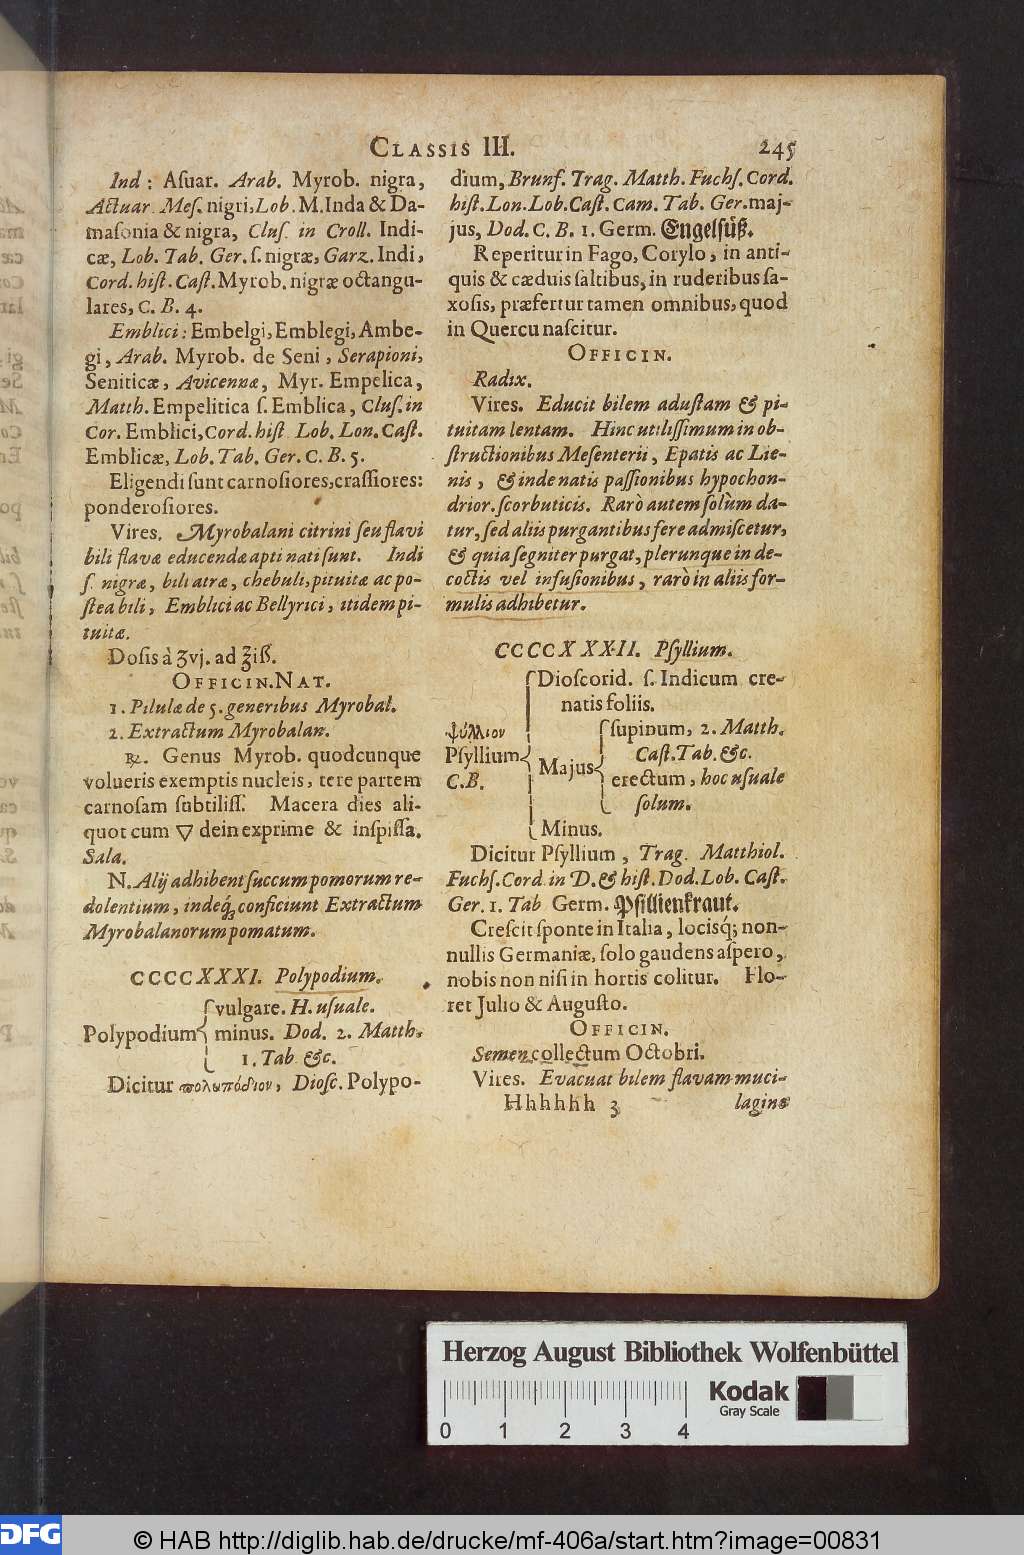 CLASSIS III. 245
Ind: Asuar. Arab. Myrob. nigra,
Actuar. Mes. nigri, Lob. M. Inda & Da-
masonia & nigra, Clus. in Croll. Indi-
cæ, Lob. Tab. Ger. ſ. nigræ, Garz. Indi,
Cord. hiſt. Caſt. Myrob. nigræ octangu-
lares, C. B. 4.
Emblici: Embelgi, Emblegi, Ambe-
gi, Arab. Myrob. de Seni, Serapioni,
Seniticæ, Avicennæ, Myr. Empelica,
Matth. Empelitica ſ. Emblica, Cluſ. in
Cor. Emblici, Cord. hiſt Lob. Lon. Caſt.
Emblicæ, Lob. Tab. Ger. C. B. 5.
Eligendi ſunt carnoſiores, craſſiores:
ponderoſiores.
Vires. Myrobalani citrini ſeu flavi
bili flavæ educendæ apti nati ſunt. Indi
ſ. nigræ, bili atræ, chebuli, pituitæ ac po-
ſtea bili, Emblici ac Bellyrici, itidem pi-
tuitæ.
Doſis à ʒvj. ad ℥iß.
OFFICIN. NAT.
1. Pilulæ de 5. generibus Myrobal.
2. Extractum Myrobalan.
℞. Genus Myrob. quodcunque
volueris exemptis nucleis, tere partem
carnoſam ſubtiliſſ. Macera dies ali-
quot cum ▽ dein exprime & inſpiſſa.
Sala.
N. Alij adhibent ſuccum pomorum re-
dolentium, indeq́; conficiunt Extractum
Myrobalanorum pomatum.
CCCCXXXI. Polypodium.
vulgare. H. uſuale.
Polypodium { minus. Dod. 2. Matth.
1. Tab &c.
Dicitur πολυπόδιον, Dioſc. Polypo-
dium, Brunf. Trag. Matth. Fuchſ. Cord.
hiſt. Lon. Lob. Caſt. Cam. Tab. Ger. maj-
jus, Dod. C. B. 1. Germ. Engelſüß.
Reperitur in Fago, Corylo, in anti-
quis & cæduis ſaltibus, in ruderibus ſa-
xoſis, præfertur tamen omnibus, quod
in Quercu naſcitur.
OFFICIN.
Radix.
Vires. Educit bilem aduſtam & pi-
tuitam lentam. Hinc utiliſſimum in ob-
ſtructionibus Meſenterii, Epatis ac Lie-
nis, & inde natis paſſionibus hypochon-
drior. ſcorbuticis. Rarò autem ſolùm da-
tur, ſed aliis purgantibus fere admiſcetur,
& quia ſegniter purgat, plerunque in de-
coctis vel infuſionibus, rarò in aliis for-
mulis adhibetur.
CCCCXXXII. Pſyllium.
Dioſcorid. ſ. Indicum cre-
natis foliis.
ψύλλιον ſupinum, 2. Matth.
Pſyllium { Majus { Caſt. Tab. &c.
C. B. erectum, hoc uſuale
ſolum.
Minus.
Dicitur Pſyllium, Trag. Matthiol.
Fuchſ. Cord in D. & hiſt. Dod. Lob. Caſt.
Ger. 1. Tab Germ. Pſillienkraut.
Creſcit ſponte in Italia, locisq́; non-
nullis Germaniæ, ſolo gaudens aſpero,
nobis non niſi in hortis colitur. Flo-
ret Julio & Auguſto.
OFFICIN.
Semen collectum Octobri.
Vires. Evacuat bilem flavam muci-
Hhhhhh 3 laginæ
Herzog August Bibliothek Wolfenbüttel
0 1 2 3 4
Kodak
Gray Scale
DFG
© HAB http://diglib.hab.de/drucke/mf-406a/start.htm?image=00831